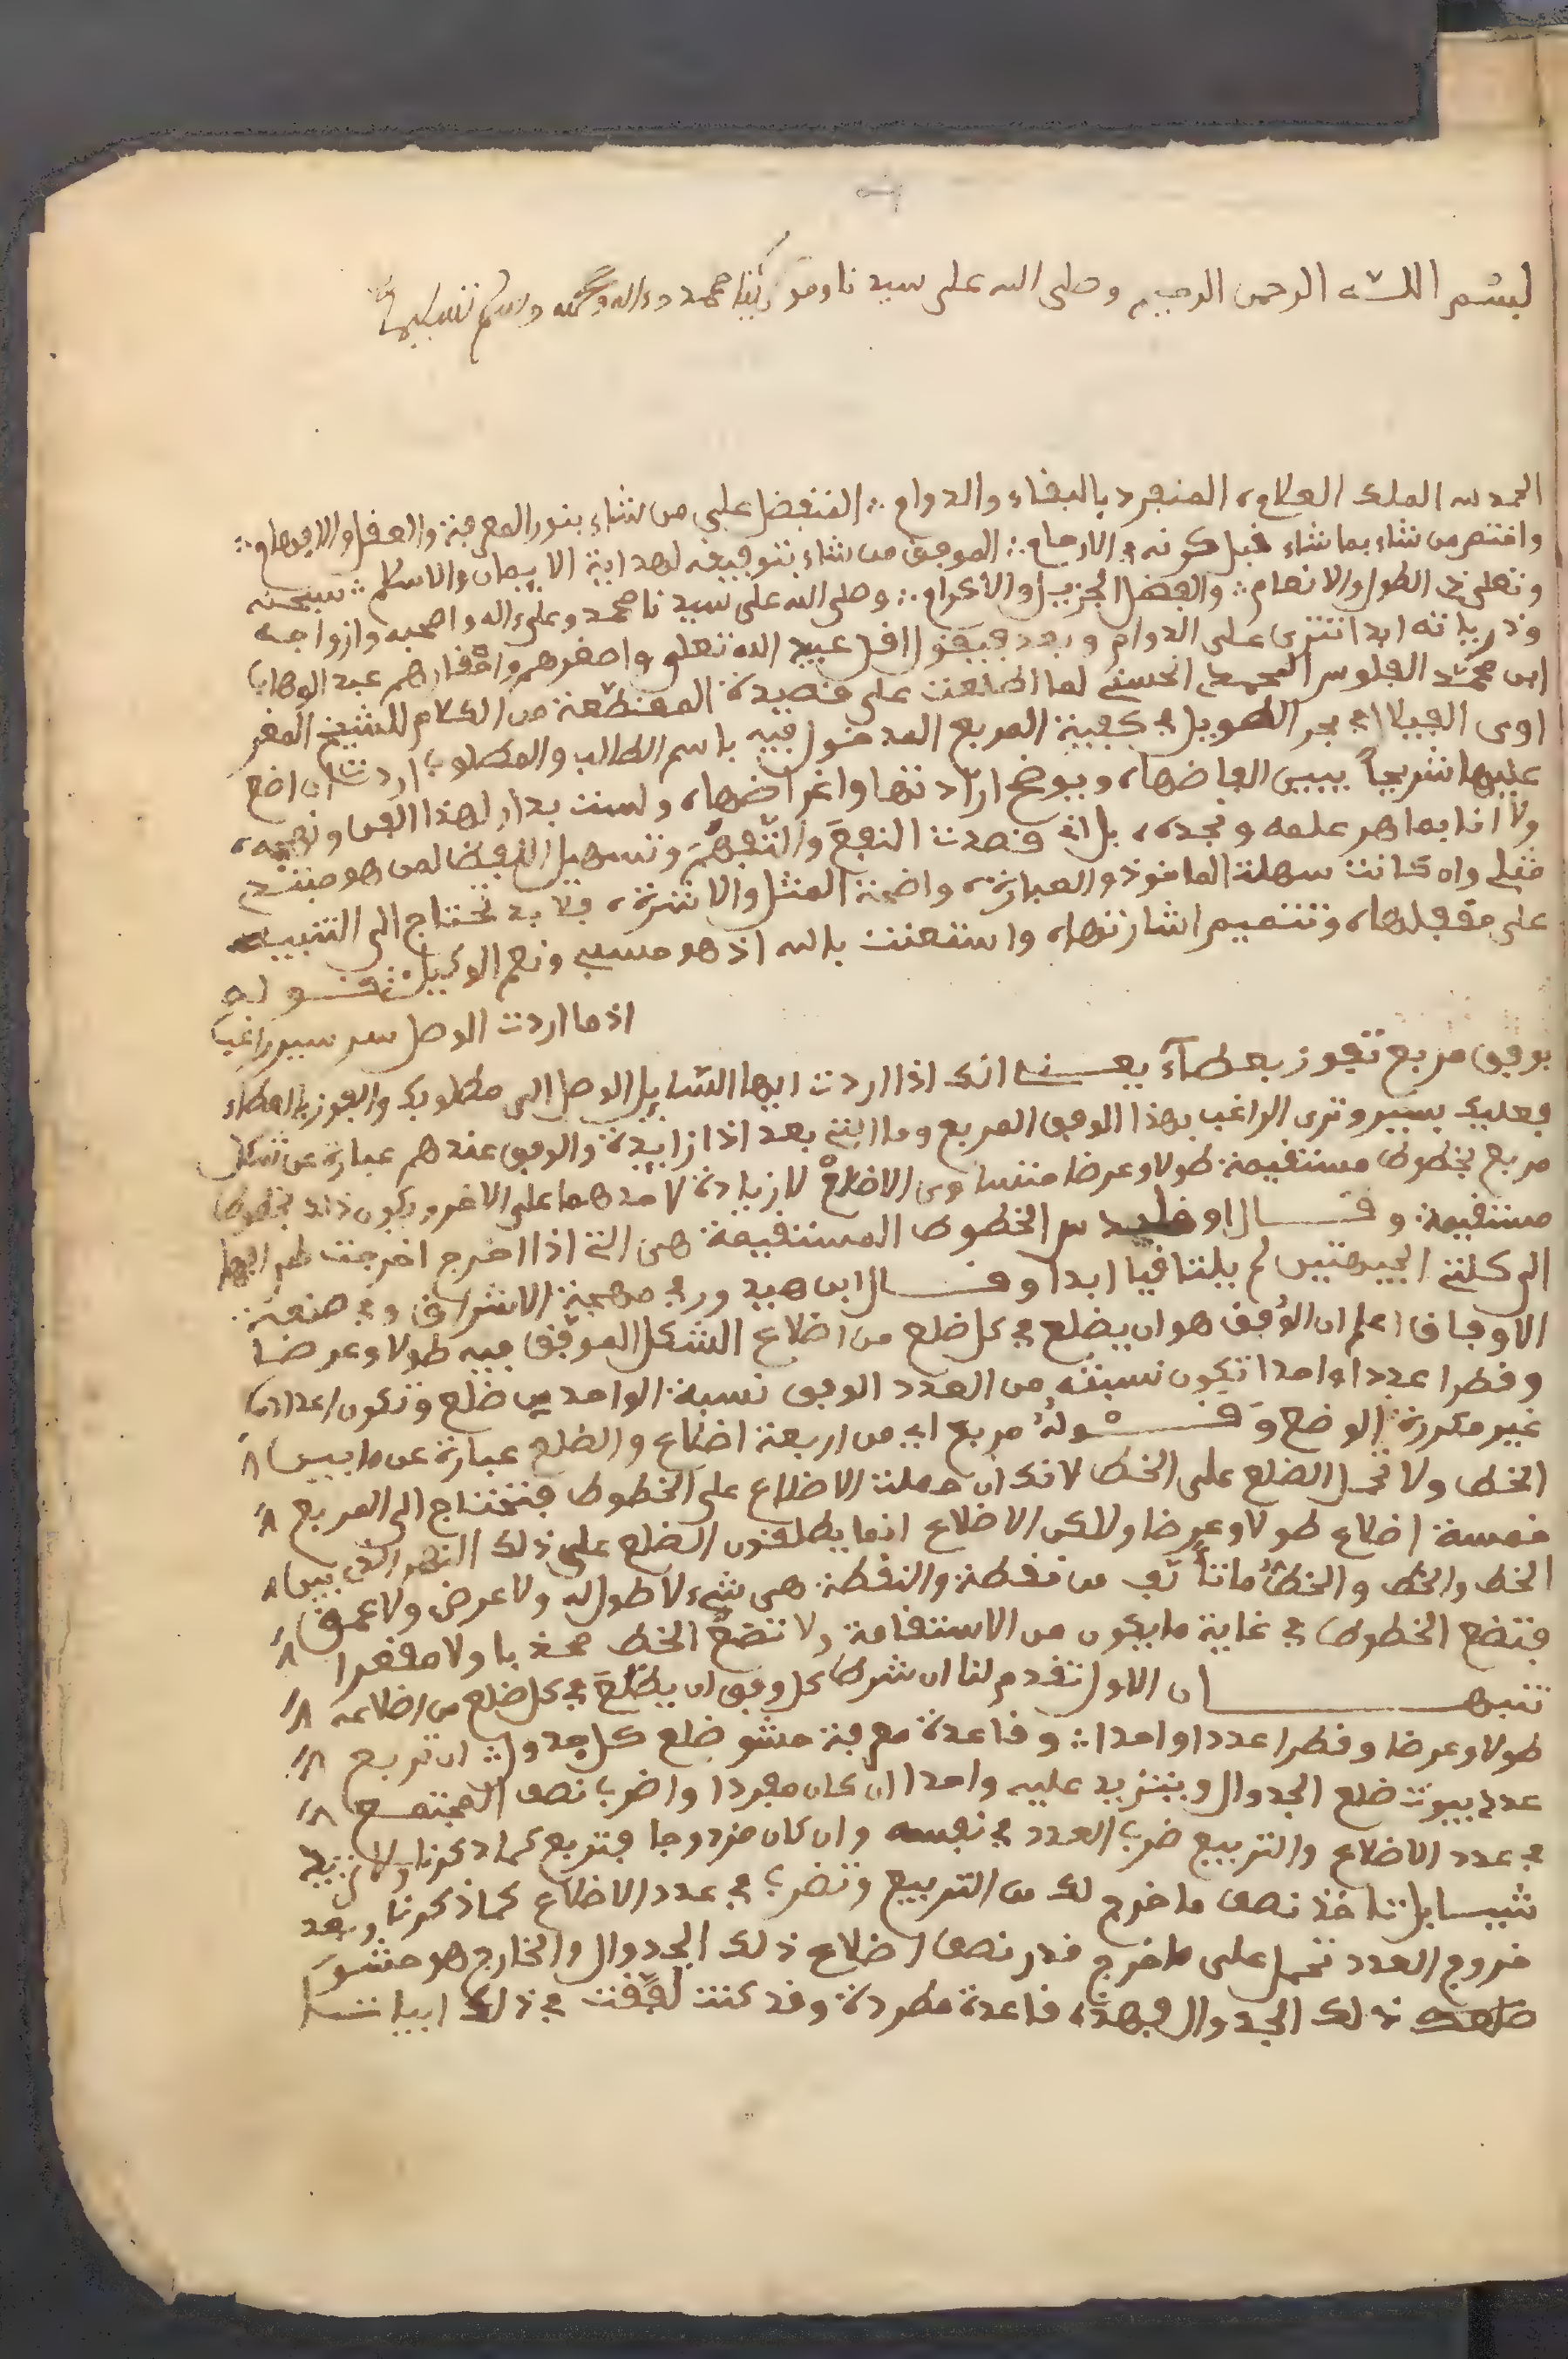 بسم الله الرحمن الرحيم وصلى الله على سيدنا ومولانا محمد وءاله وصحبه وسلم تسليما
الحمد لله الملك العلام، المنفرد بالبقاء والدوام ؞ المتفضل على من شاء بنور المعرفة والعقل والافهام ؞
واختص من شاء بما شاء قبل كونه في الارحام ؞ الموفق من شاء بتوفيقه لهداية الايمان والاسلام ؞ سبحنه
وتعلى ذي الطول والانعام ؞ والفضل الجزيل والاكرام ؞ وصلى الله على سيدنا محمد وعلى ءاله واصحبه وازواجه
وذرياته ابدا تترى على الدوام وبعد فيقول افل عبيد الله تعلى واصغرهم واحقارهم عبد الوهاب
ابن محمد الحسني لما اطلعت على قصيدة المقتطعة من الكلام للشيخ المغر
اوى القبلا في بحر الطويل في كيفية المربع المدخول فيه باسم الطالب والمطلوب اردت ان اضع
عليها شريحا يبين الفاضها، ويوضح ارادتها واغراضها، ولست بدار لهذا الفن ونهجه،
ولا انا بماهر علمه ونجده، بل اني قصدت النفع والتفهم وتسهيل اللفظ لمن هو مبتدي
مثلي وان كانت سهلة الماخوذ والعبارة، واضحة المثل والاشرة، فلا بد تحتاج الى التنبيه
على مقفلها، وتتميم اشارتها، واستعنت بالله اذ هو حسبي ونعم الوكيل ؞ قوله
اذا ما اردت الوصل سر سير راغب
بوفق مربع تفوز بعطاء يعني انك اذا اردت ايها السايل الوصل الى مطلوبك والفوز بالعطاء
فعليك بسير وترى الراغب بهذا الوفق المربع وما اتى بعد اذا زايدة والوفق عندهم عبارة عن شكل
مربع بخطوط مستقيمة طولا وعرضا متساوي الاضلاع لا زيادة لاحدهما على الاخر ويكون ذلك بخطوط
مستقيمة وقال اوقليدس الخطوط المستقيمة هي التي اذا اخرج اخرجت طرافها
الى كلتي الجيهتين لم يلتافيا ابدا وقال ابن هيدور في مهجة الاشراق وفي صنعة
الاوفاق اعلم ان الوفق هو ان يضلع في كل ضلع من اضلاع الشكل الموفق فيه طولا وعرضا
وقطرا عددا واحدا تكون نسبته من العدد الوفق نسبة الواحد من ضلع وتكون اعداده
غير مكررة الوضع وقوله مربع اي من اربعة اضلاع والضلع عبارة عن ما بين
الخط ولا تحمل الضلع على الخط لانك ان حملت الاضلاع على الخطوط فتحتاج الى المربع
خمسة اضلاع طولا وعرضا ولاكن الاضلاع انما يطلقون الضلع على ذلك النهر الذي بين
الخط والخط والخط ما تالف من نقطة والنقطة هي شيء لا طول له ولا عرض ولا عمق
فتضع الخطوط في غاية ما يكون من الاستقامة ولا تضع الخط محذبا ولا مقعرا
تنبيهان الاول تقدم لنا ان شرط كل وفق ان يطلع في كل ضلع من اضلاعه
طولا وعرضا وقطرا عددا واحدا ؞ وقاعدة معرفة حشو ضلع كل جدول ؞ ان تربع
عدد بيوت ضلع الجدوال وبتزيد عليه واحدا ان كان مفردا واضرب نصف المجتمع
في عدد الاضلاع والتربيع ضرب العدد في نفسه وان كان مزدوجا فتربع كما ذكرنا ولا تزيد
شييا بل تاخذ نصف ما خرج لك من التربيع وتضرب في عدد الاضلاع كما ذكرنا وبعد
خروج العدد تحمل على ما خرج قدر نصف اضلاع ذلك الجدوال والخارج هو حشو
ضلع ذلك الجدوال فهذه قاعدة مطردة وقد كنت لفقت في ذلك ابياتا